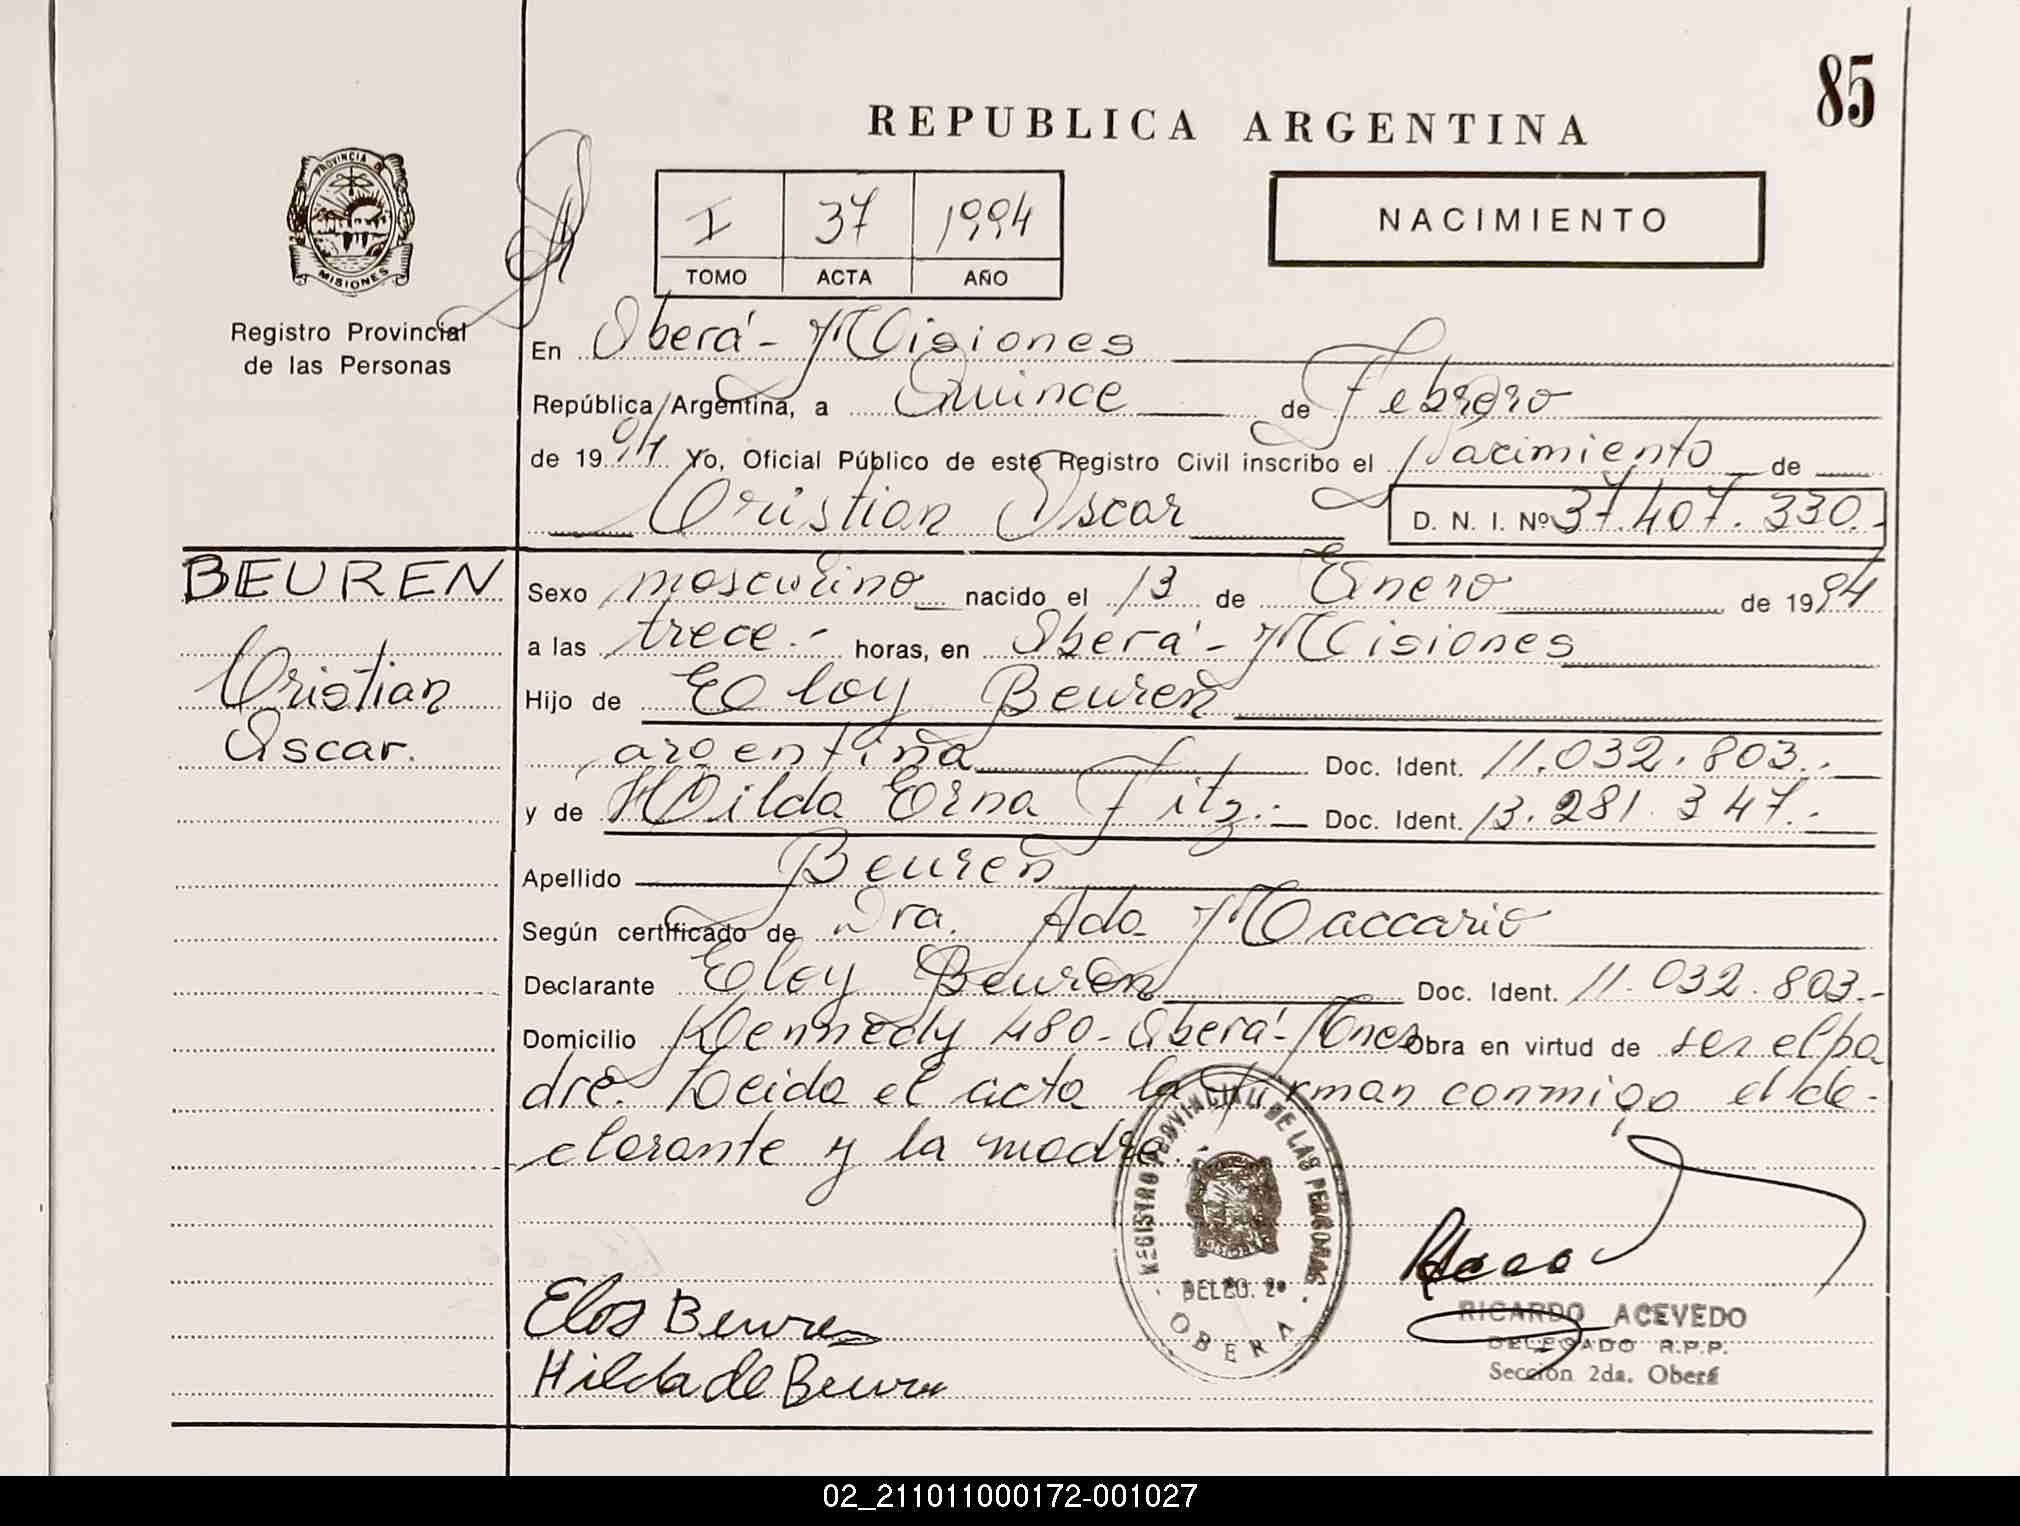 85
REPUBLICA ARGENTINA
PROVINCIA DE
MISIONES
Registro Provincial
de las Personas
I 37 1994
TOMO ACTA AÑO
NACIMIENTO
En Oberá - Misiones
República Argentina, a Quince de Febrero
de 1994 Yo, Oficial Público de este Registro Civil inscribo el Nacimiento de
Cristian Oscar D. N. I. Nº 37.407.330.-
BEUREN
Cristian
Oscar.
Sexo masculino nacido el 13 de Enero de 1994
a las trece.- horas, en Oberá - Misiones
Hijo de Eloy Beuren
argentina Doc. Ident. 11.032.803.-
y de Hilda Erna Fitz.- Doc. Ident. 13.281.347.-
Apellido Beuren
Según certificado de Dra. Ada Maccario
Declarante Eloy Beuren Doc. Ident. 11.032.803.-
Domicilio Kennedy 480 - Oberá - Mnes Obra en virtud de ser el pa
dre. Leida el acta la firman conmigo el de-
clarante y la madre.-
REGISTRO PROVINCIAL DE LAS PERSONAS
DELEG. 2ª
OBERA
Eloy Beuren
Hilda de Beuren
RICARDO ACEVEDO
DELEGADO R.P.P.
Sección 2da. Oberá
02_211011000172-001027